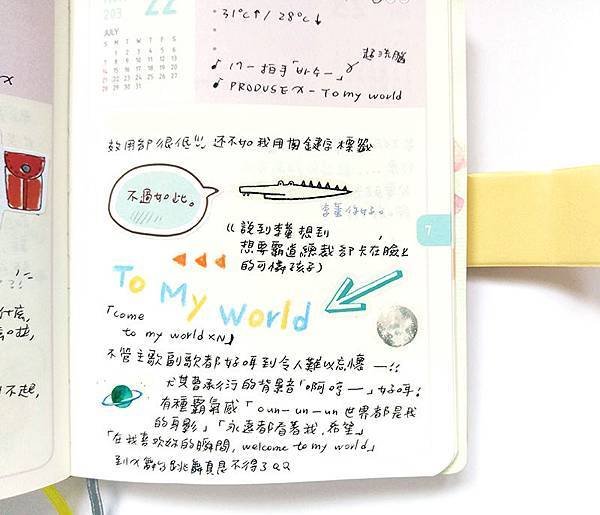 203
22
31°C↑/28°C↓
JULY
S M T W T F S
1 2 3 4 5 6
7 8 9 10 11 12 13
14 15 16 17 18 19 20
21 22 23 24 25 26 27
28 29 30 31
超洗腦
♪ 17－拍手「박수－」
♪ PRODUSE X－To my world
效用却很低!!! 还不如我用關鍵字標籤
不過如此。
李董你好。
((說到李董想到
想要霸道總裁却卡在臉上
的可憐孩子)
7
To My World
「come
to my world×N」
不管主歌副歌都好呀到令人難以忘懷一!!
尤其曹承衍的背景音「啊哼一」好呀!
有種霸氣感「oun-un-un世界都是我
的身影」「永遠都看着我,希望」
「在我喜欢你的瞬間, welcome to my world」
什麼,
不起,